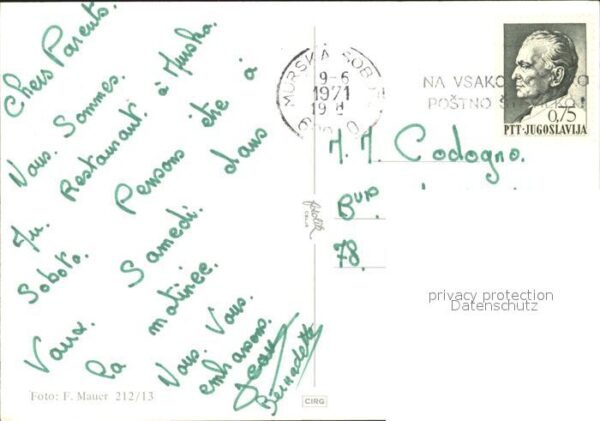 Chers Parents.
Nous. Sommes.
Au Restaurant à Murska.
Soboto. Pensons être à
Vaux. Samedi. dans
la matinée.
Nous. Vous.
embrassons.
Jean
Bernadette
Foto: F. Mauer 212/13
CIRG
MURSKA SOB
9-6
1971
19
NA VSAKO
POŠTNO
0,75
PTT-JUGOSLAVIJA
Codogno.
78.
privacy protection
Datenschutz